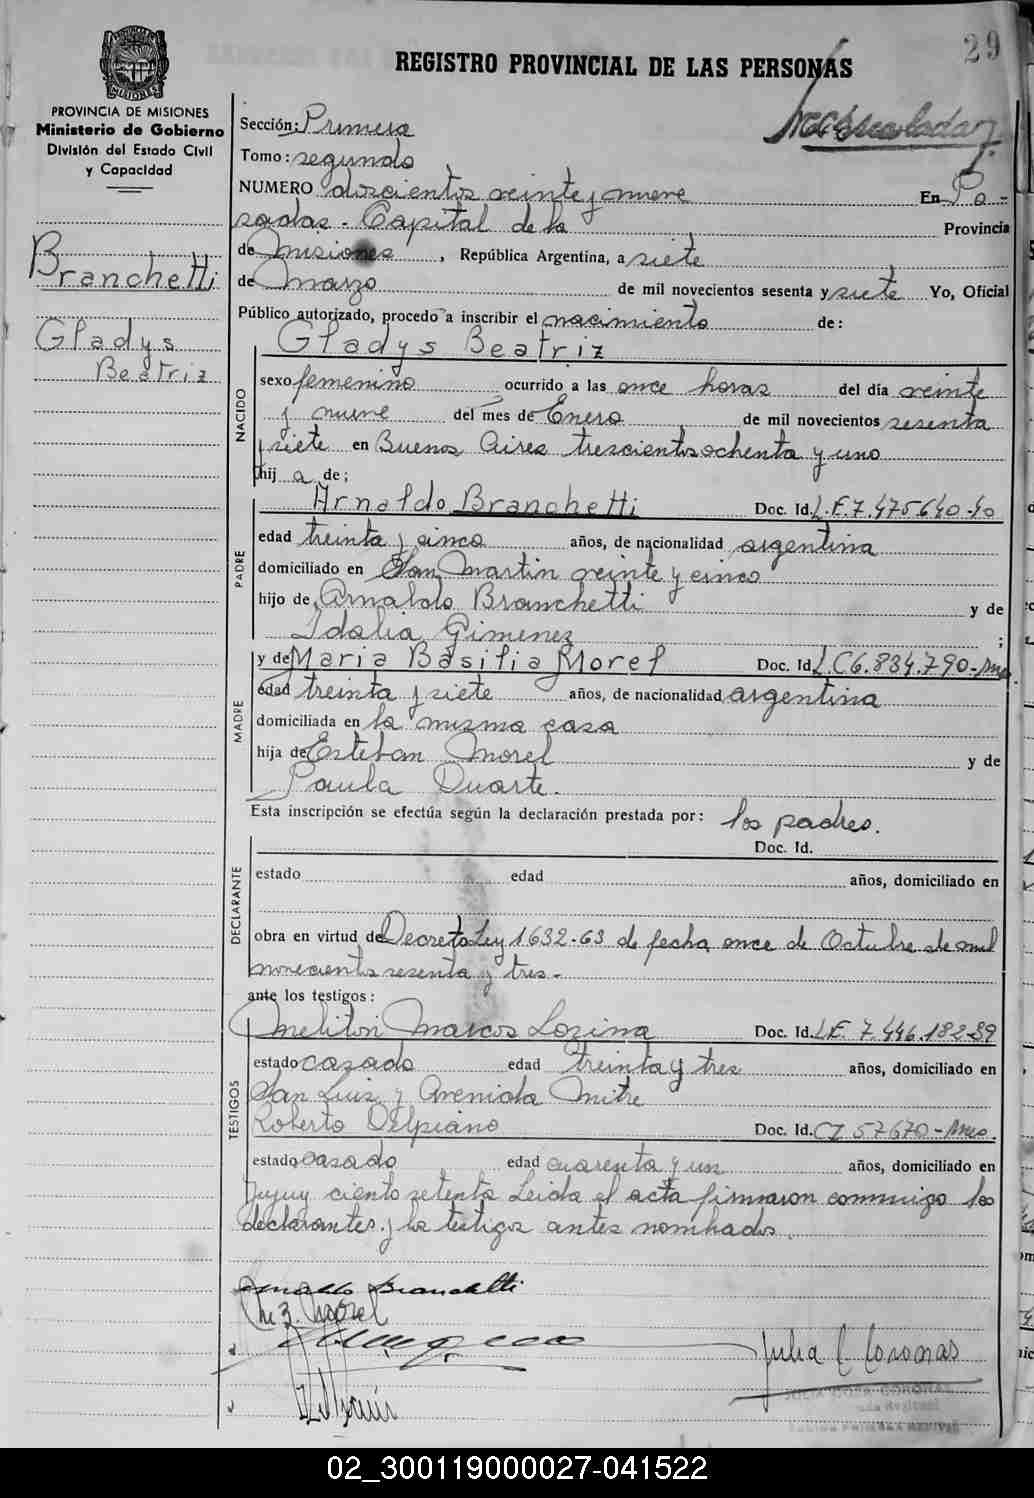 29
REGISTRO PROVINCIAL DE LAS PERSONAS
PROVINCIA DE MISIONES
Ministerio de Gobierno
División del Estado Civil
y Capacidad
Branchetti
Gladys
Beatriz
Sección: Primera
Tomo: segundo
NUMERO doscientos veinte y nueve En Po-
sadas. Capital de la Provincia
de Misiones, República Argentina, a siete
de Marzo de mil novecientos sesenta y siete Yo, Oficial
Público autorizado, procedo a inscribir el nacimiento de:
Gladys Beatriz
NACIDO
sexo femenino ocurrido a las once horas del día veinte
y nueve del mes de Enero de mil novecientos sesenta
y siete en Buenos Aires trescientos ochenta y uno
hij a de;
PADRE
Arnaldo Branchetti Doc. Id. L.E.7.475.640-40
edad treinta y cinco años, de nacionalidad argentina
domiciliado en San Martin veinte y cinco
hijo de Arnaldo Branchetti y de
Idalia Gimenez ;
MADRE
y de Maria Basilia Morel Doc. Id. L.C6.834.790-Mnes
edad treinta y siete años, de nacionalidad argentina
domiciliada en la misma casa
hija de Esteban Morel y de
Paula Duarte.
Esta inscripción se efectúa según la declaración prestada por: los padres.
Doc. Id.
DECLARANTE
estado edad años, domiciliado en
obra en virtud de Decreto Ley 1632-63 de fecha once de Octubre de mil
novecientos sesenta y tres.-
ante los testigos:
TESTIGOS
Meliton Marcos Lozina Doc. Id. L.E. 7.446.182-89
estado casado edad treinta y tres años, domiciliado en
San Luis y Avenida Mitre
Roberto Delpiano Doc. Id. CI 57670-Mnes.
estado casado edad cuarenta y un años, domiciliado en
Jujuy ciento setenta Leida el acta firmaron conmigo los
declarantes y los testigos antes nombrados.
Arnaldo Branchetti
M B. Morel
Julia C Coronas
02_300119000027-041522